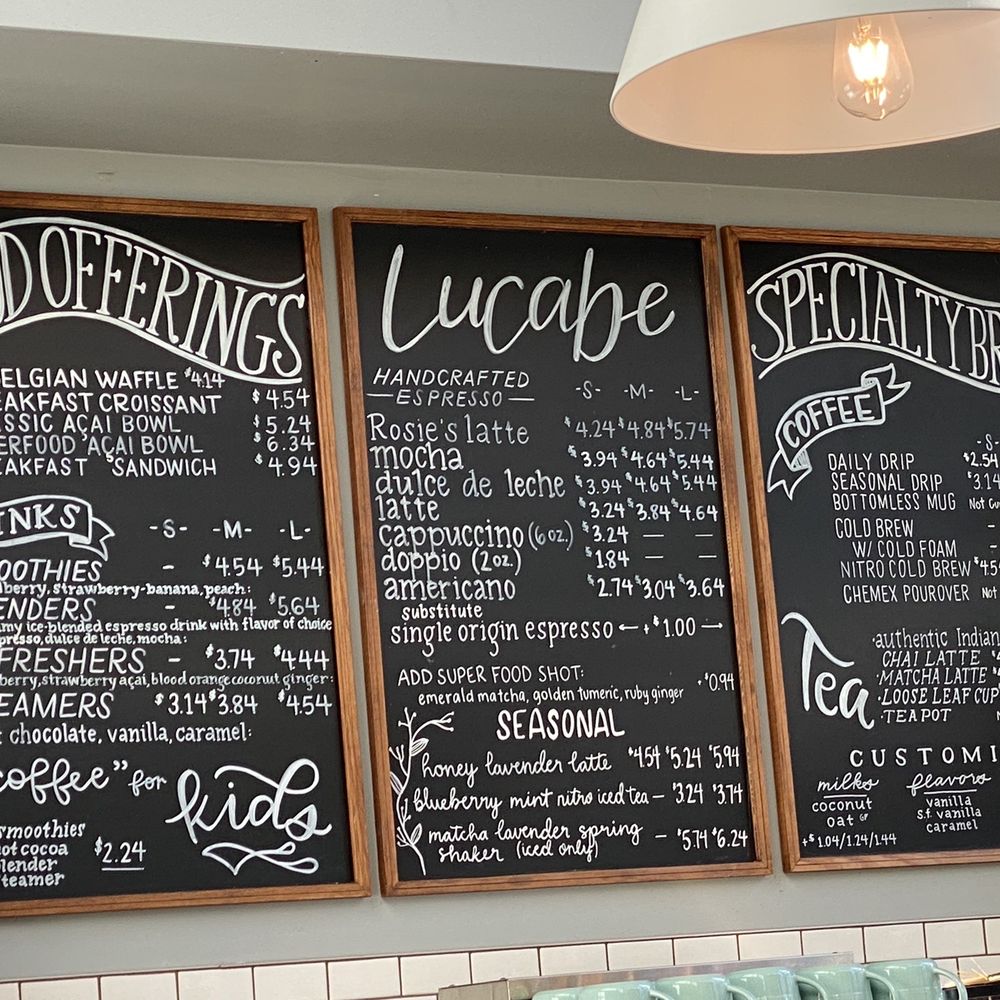 D OFFERINGS
ELGIAN WAFFLE $4.14
EAKFAST CROISSANT $4.54
SSIC AÇAI BOWL $5.24
ERFOOD AÇAI BOWL $6.34
EAKFAST SANDWICH $4.94
NKS -S- -M- -L-
OOTHIES - $4.54 $5.44
berry, strawberry-banana, peach:
ENDERS - $4.84 $5.64
my ice-blended espresso drink with flavor of choice
presso, dulce de leche, mocha:
FRESHERS - $3.74 $4.44
berry, strawberry açai, blood orange coconut ginger:
EAMERS $3.14 $3.84 $4.54
chocolate, vanilla, caramel:
coffee" for kids
smoothies
hot cocoa
blender
steamer
$2.24
Lucabe
HANDCRAFTED
ESPRESSO -S- -M- -L-
Rosie's latte $4.24 $4.84 $5.74
mocha $3.94 $4.64 $5.44
dulce de leche $3.94 $4.64 $5.44
latte $3.24 $3.84 $4.64
cappuccino (6 oz.) $3.24 — —
doppio (2 oz.) $1.84 — —
americano $2.74 $3.04 $3.64
substitute
single origin espresso ← +$1.00 →
ADD SUPER FOOD SHOT:
emerald matcha, golden tumeric, ruby ginger +$0.94
SEASONAL
honey lavender latte $4.54 $5.24 $5.94
blueberry mint nitro iced tea — $3.24 $3.74
matcha lavender spring — $5.74 $6.24
shaker (iced only)
SPECIALTY BR
COFFEE
-S-
DAILY DRIP $2.54
SEASONAL DRIP $3.14
BOTTOMLESS MUG Not
COLD BREW -
W/ COLD FOAM -
NITRO COLD BREW
CHEMEX POUROVER Not
Tea
·authentic Indian
CHAI LATTE
·MATCHA LATTE
·LOOSE LEAF CUP
·TEA POT
CUSTOMI
milks flavors
coconut
oat GF
vanilla
s.f. vanilla
caramel
+$1.04/1.24/1.44